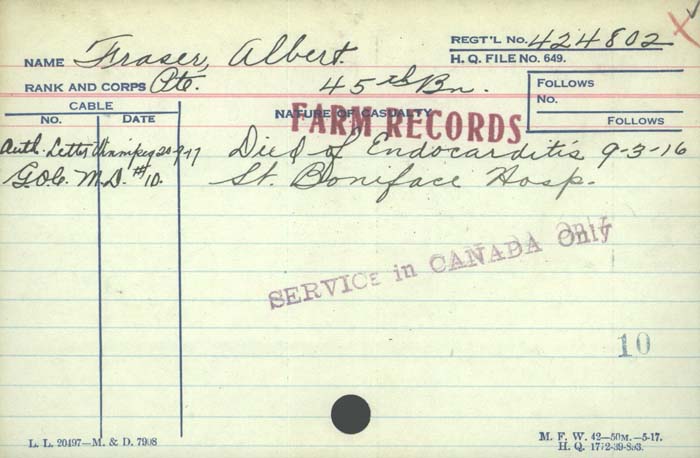 NAME Fraser, Albert. REGT'L No. 424802
H. Q. FILE No. 649.
RANK AND CORPS Pte. 45th Bn.
FOLLOWS
No.
FOLLOWS
CABLE
No. DATE
NATURE OF CASUALTY
FARM RECORDS
Auth. Letter Winnipeg 20-9-17 Died of Endocarditis 9-3-16
G.O.C. M.D. #10. St. Boniface Hosp.
SERVICE in CANADA Only
10
L. L. 20497—M. & D. 7908
M. F. W. 42—50M.—5-17.
H. Q. 1772-39-893.